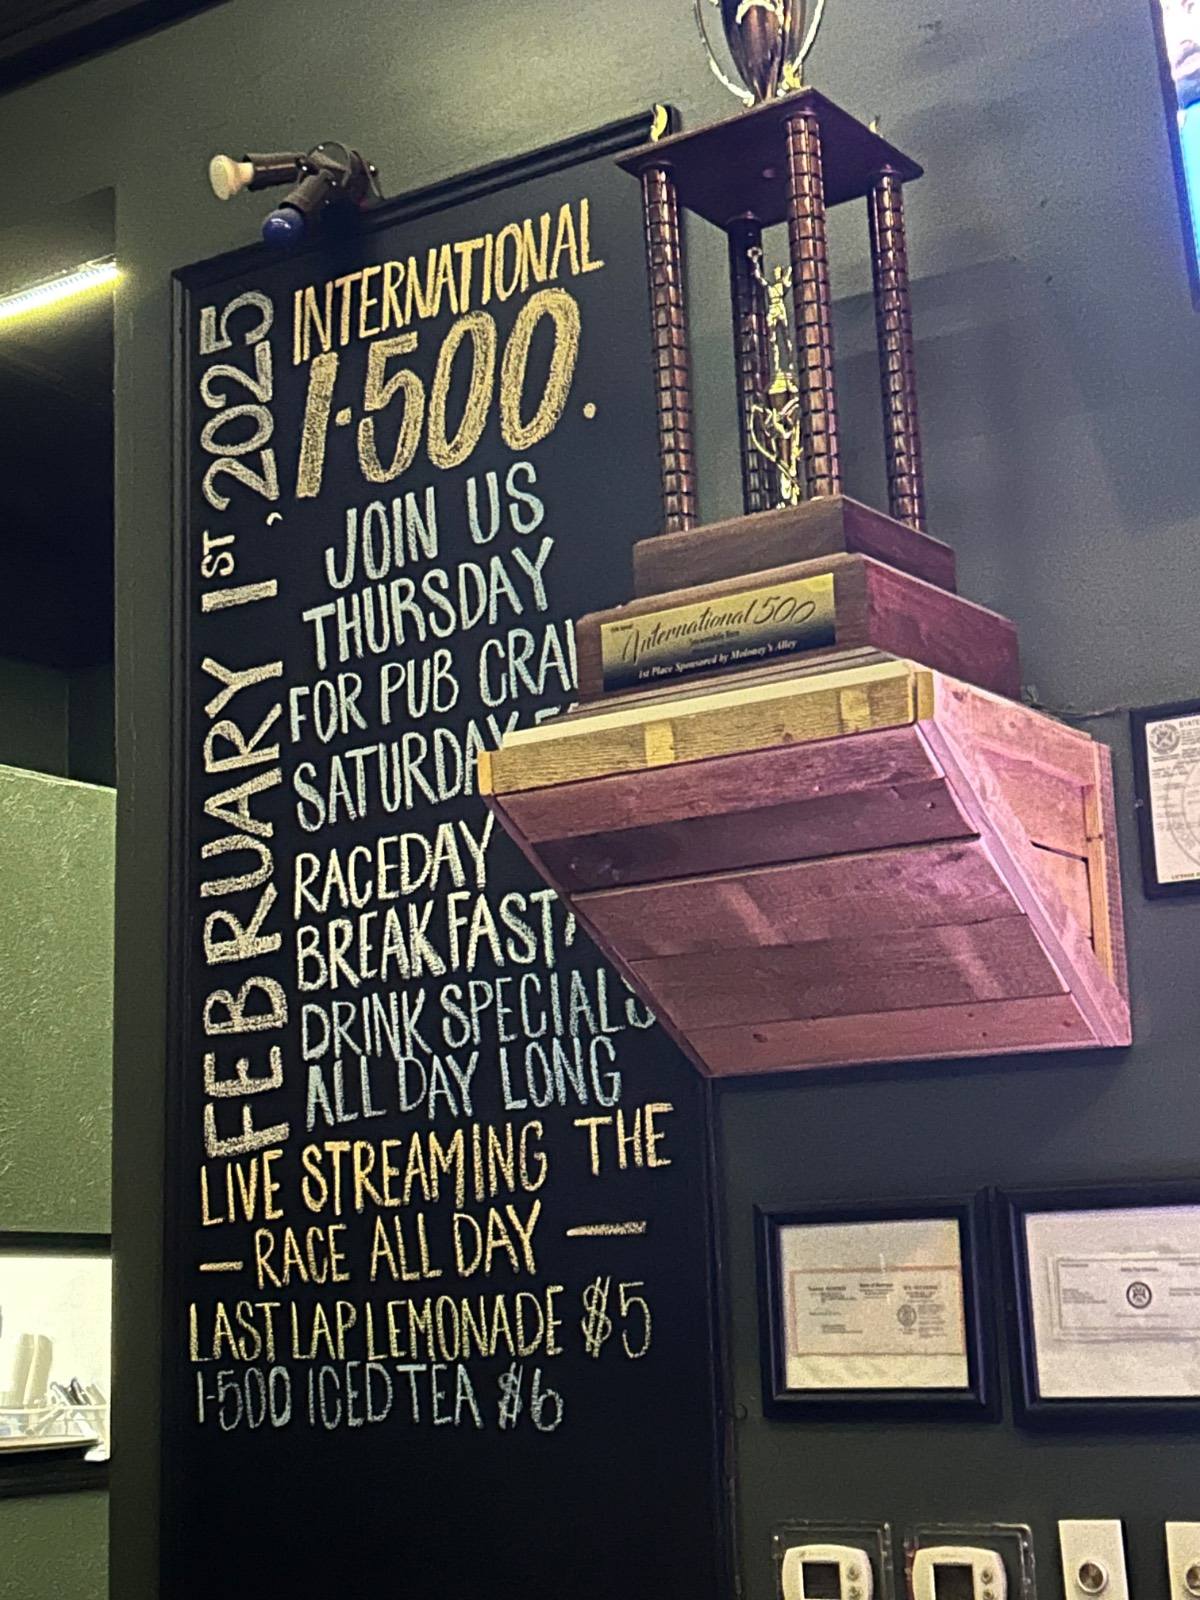 FEBRUARY 1ST, 2025
INTERNATIONAL
I·500.
JOIN US
THURSDAY
FOR PUB CRA
SATURDAY
RACEDAY
BREAKFAST,
DRINK SPECIALS
ALL DAY LONG
LIVE STREAMING THE
— RACE ALL DAY —
LAST LAP LEMONADE $5
I-500 ICED TEA $6
International 500
1st Place Sponsored by Moloney's Alley